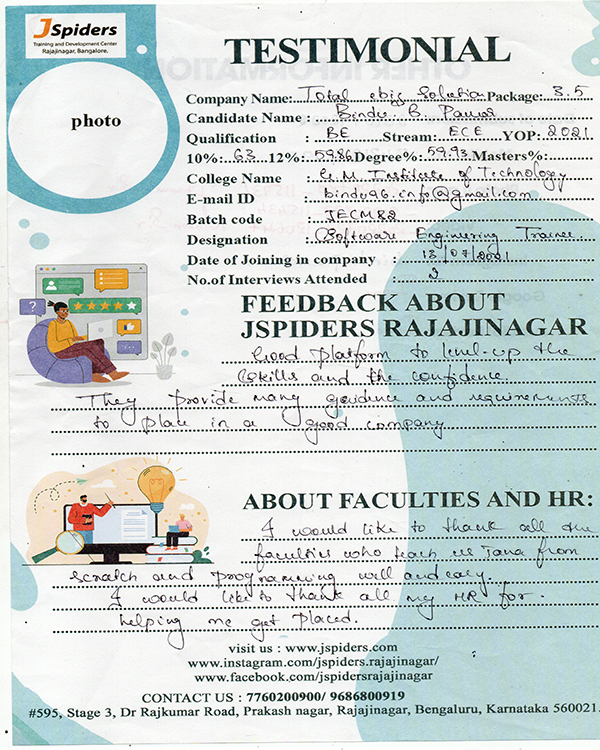 JSpiders
Training and Development Center
Rajajinagar, Bangalore.
TESTIMONIAL
photo
Company Name: Total ebiz Solution Package: 3.5
Candidate Name : Bindu B. Pawar
Qualification : BE Stream: ECE YOP: 2021
10%: 63 12%: 59.86 Degree%: 59.93 Masters%:
College Name G.M Institute of Technology
E-mail ID : bindu96.info@gmail.com
Batch code : JECM82
Designation : Software Engineering Trainee
Date of Joining in company : 13/07/2021
No.of Interviews Attended : 2
FEEDBACK ABOUT
JSPIDERS RAJAJINAGAR
Good Platform to level-up the
skills and the confidence.
They provide many guidence and requirements
to place in a good company
ABOUT FACULTIES AND HR:
I would like to thank all the
faculties who teach us Java from
scratch and programming well and easy.
I would like to thank all my HR for
helping me get placed.
visit us : www.jspiders.com
www.instagram.com/jspiders.rajajinagar/
www.facebook.com/jspidersrajajinagar
CONTACT US : 7760200900/ 9686800919
#595, Stage 3, Dr Rajkumar Road, Prakash nagar, Rajajinagar, Bengaluru, Karnataka 560021.